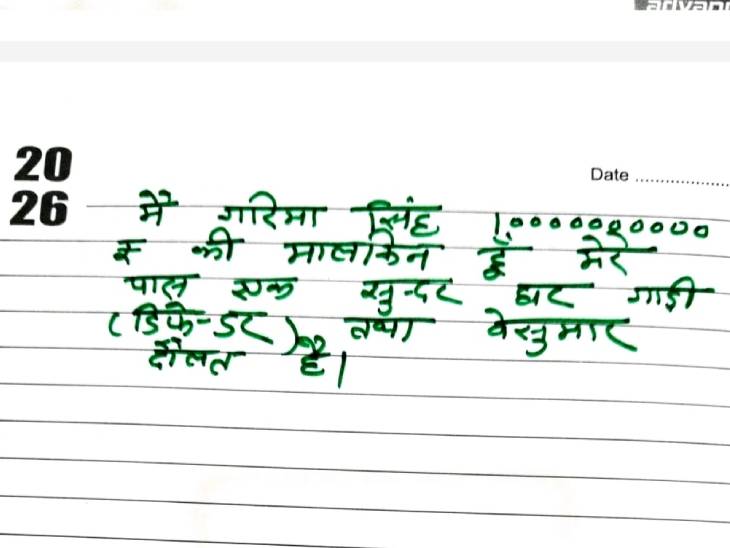 20
26
Date
मै गरिमा सिंह 1,00000020000
रु की मालकिन हूँ मेरे
पास एक सुन्दर घर गाड़ी
(डिफेन्डर) तथा वेसुमार
दौलत है।